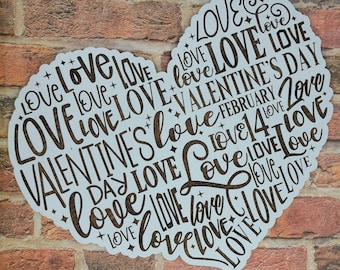 LOVE
LOVE LOVE LOVE
LOVE LOVE LOVE LOVE LOVE
LOVE LOVE LOVE VALENTINE'S DAY
LOVE LOVE LOVE FEBRUARY LOVE
VALENTINE'S love LOVE 14 LOVE LOVE
DAY LOVE Love LOVE LOVE
love LOVE love LOVE LOVE
LOVE love LOVE LOVE LOVE LOVE